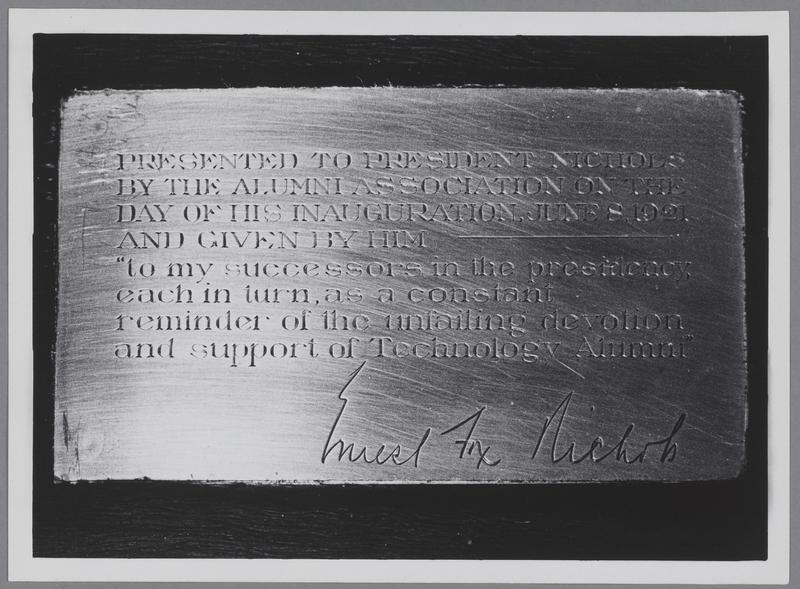 PRESENTED TO PRESIDENT NICHOLS
BY THE ALUMNI ASSOCIATION ON THE
DAY OF HIS INAUGURATION, JUNE 8, 1921
AND GIVEN BY HIM
"to my successors in the presidency,
each in turn, as a constant
reminder of the unfailing devotion
and support of Technology Alumni"
Ernest Fox Nichols